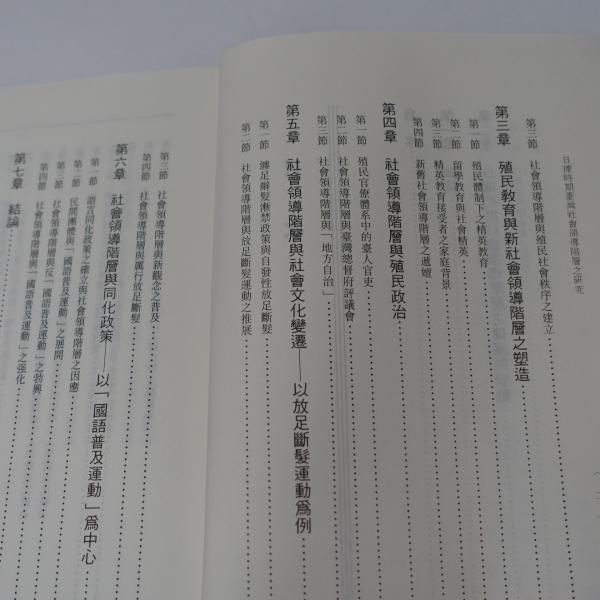 日據時期臺灣社會領導階層之研究
第三節 社會領導階層與殖民社會秩序之建立
第三章 殖民教育與新社會領導階層之塑造
第一節 殖民體制下之精英教育
第二節 留學教育與社會精英
第三節 精英教育接受者之家庭背景
第四節 新舊社會領導階層之遞嬗
第四章 社會領導階層與殖民政治
第一節 殖民官僚體系中的臺人官吏
第二節 社會領導階層與臺灣總督府評議會
第三節 社會領導階層與「地方自治」
第五章 社會領導階層與社會文化變遷——以放足斷髮運動爲例
第一節 纏足辮髮漸禁政策與自發性放足斷髮
第二節 社會領導階層與放足斷髮運動之推展
第三節 社會領導階層與新觀念之普及
第四節 社會領導階層與厲行放足斷髮
第六章 社會領導階層與同化政策——以「國語普及運動」爲中心
第一節 語言同化政策之確立與社會領導階層之因應
第二節 民間團體與「國語普及運動」之展開
第三節 社會領導階層與「國語普及運動」之勃興
第四節 社會領導階層與「國語普及運動」之強化
第七章 結論